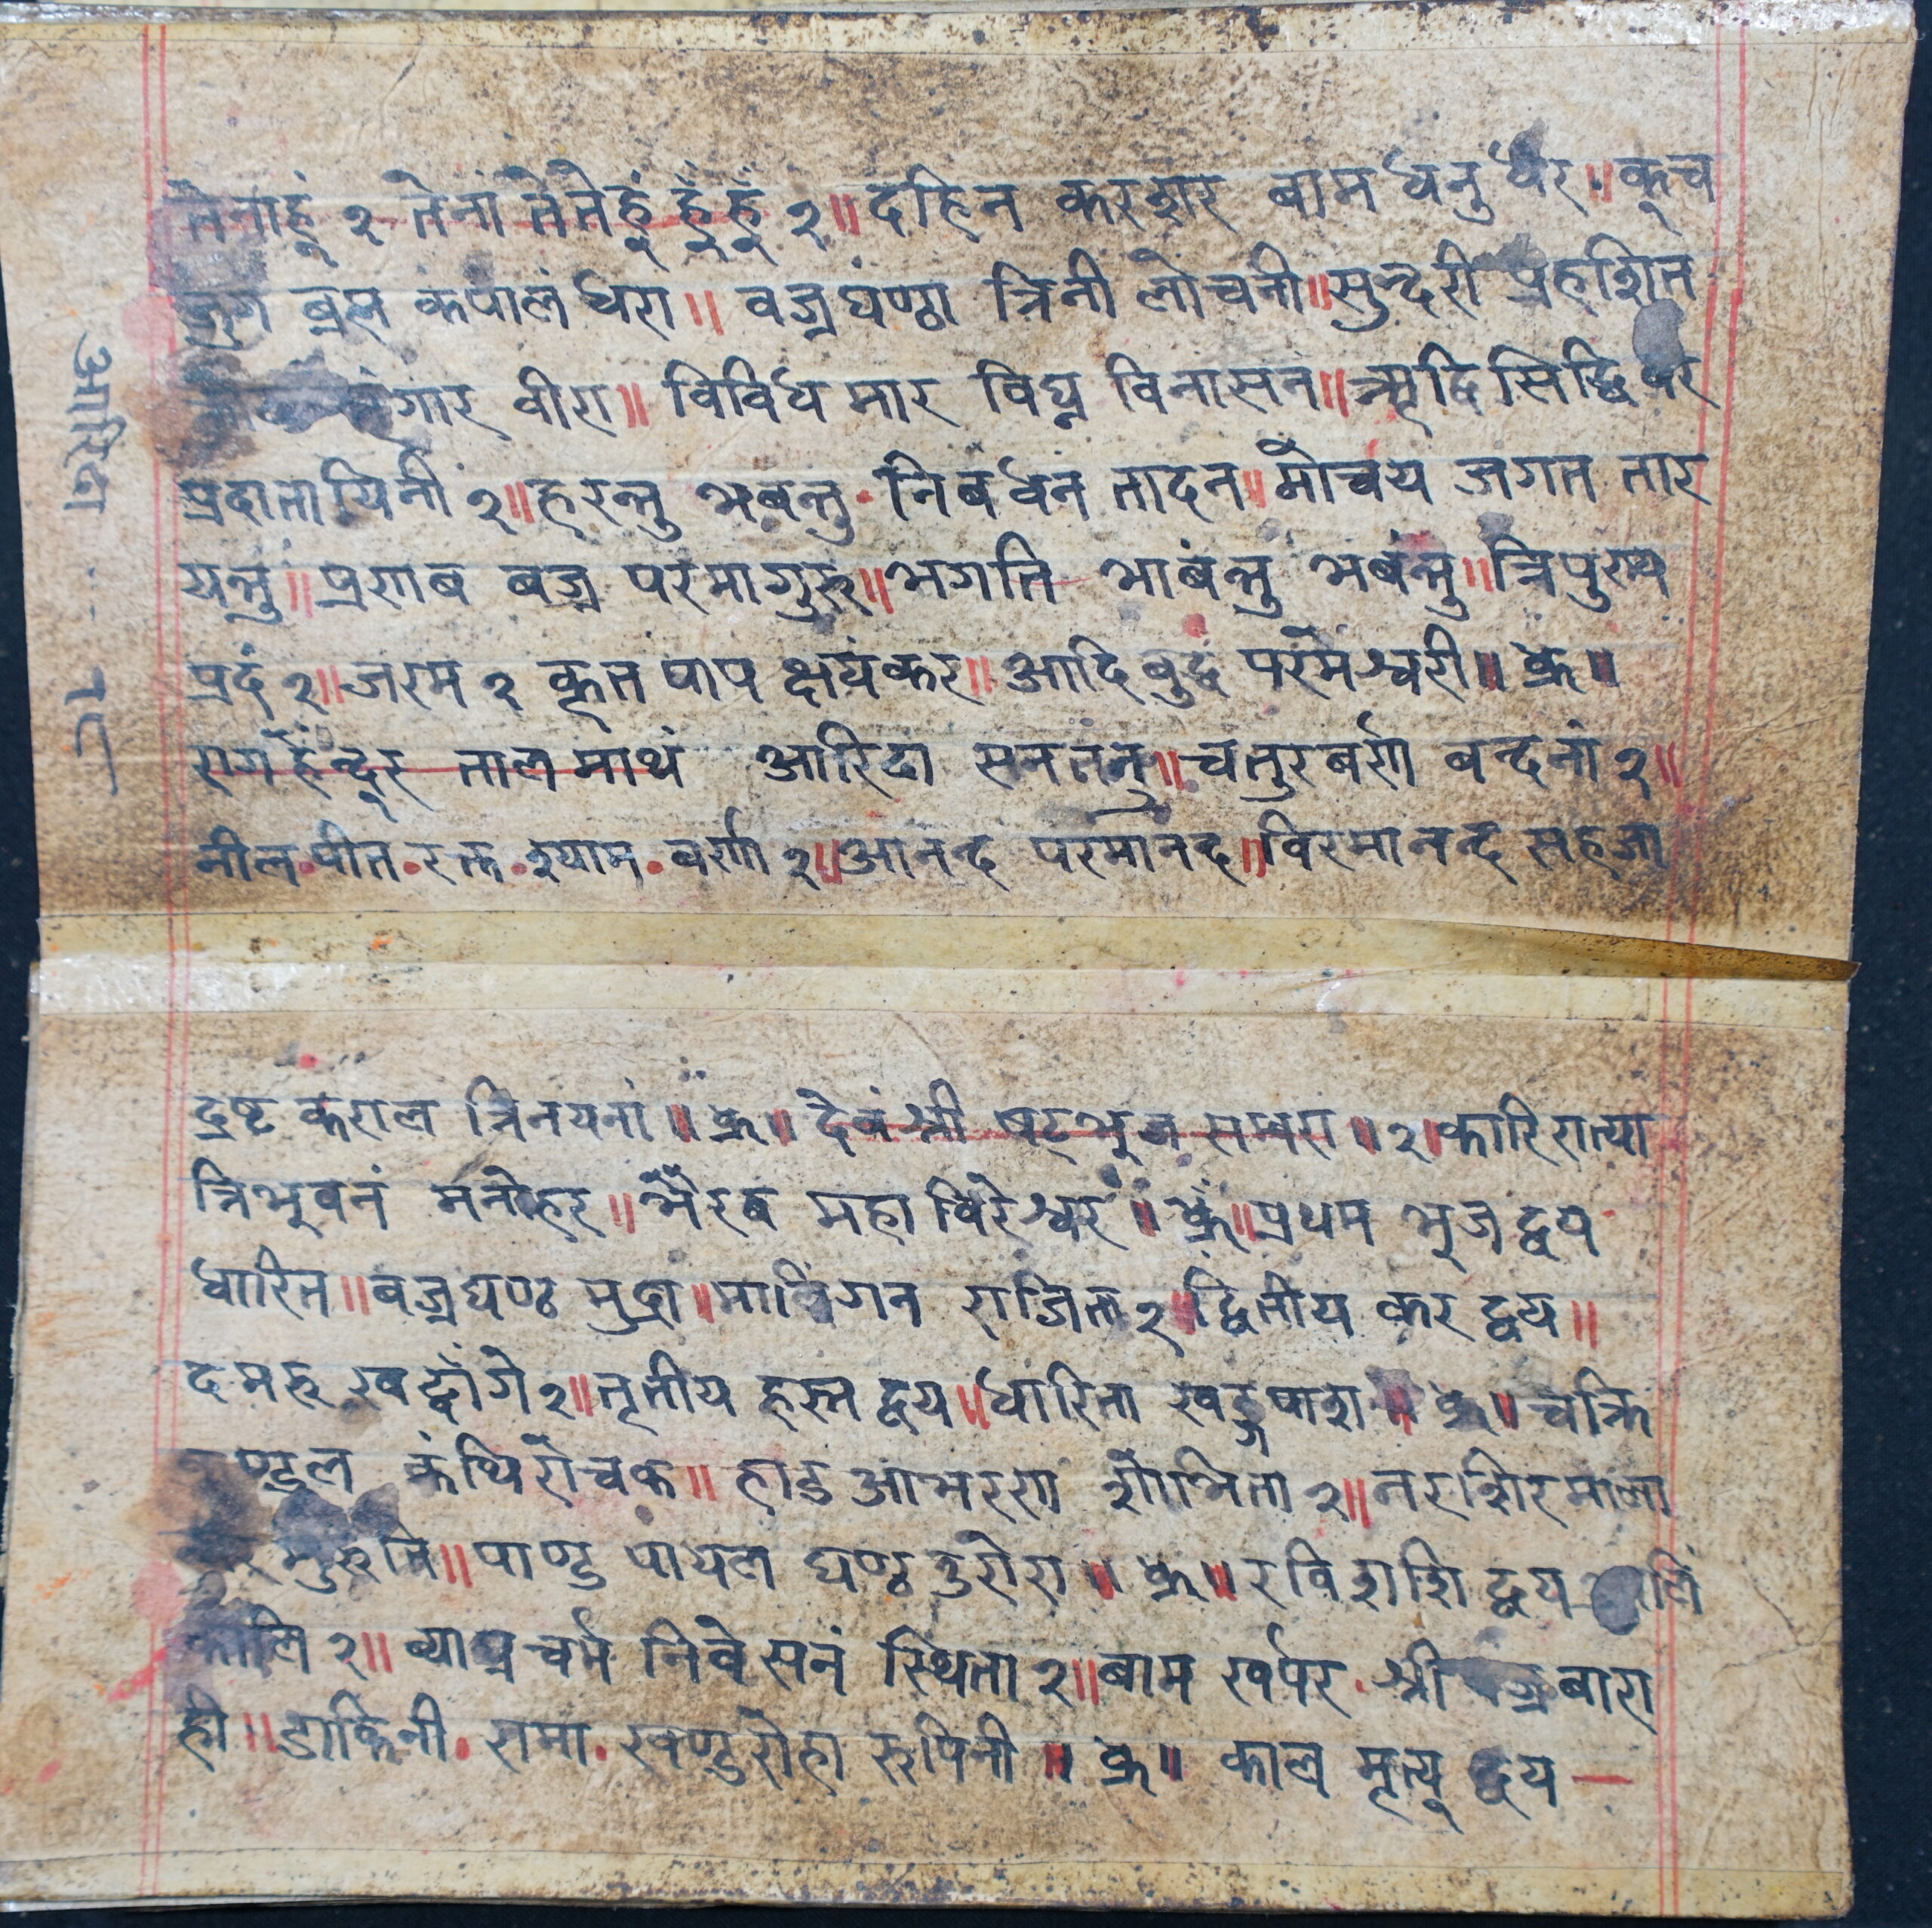 तेनाहूं २ तेनां तेतेहूं हूंहूं २॥ दहिन करशर बाम धनु र्धर॥ कूच
ब्रह्म कंपालं धरा॥ वज्रघंण्ठा त्रिनी लोचनी॥ सुन्दरी प्रहशित
वीरा॥ विविध मार विघ्न विनासन॥ ऋद्धि सिद्धि वर
प्रदातायिनी २॥ हरन्तु भबन्तु निबंधन तादन॥ मोचय जगत तार
यन्तु॥ प्रणब बज्र परंमागुरु॥ भगति भाबंन्तु भबंन्तु॥ त्रिपुराय
प्रदं २॥ जरम २ कृत पाप क्षयंकर॥ आदि बुद्ध परंमेश्वरी॥ क्र॥
राग हेंन्दूर ताल माथं आरिदा सनतंनु॥ चतुरबर्ण बन्दनां २॥
नील पीत रक्त श्याम वर्णा २॥ आनन्द परमानन्द॥ विरमानन्द सहजा
आरिदा १८
द्रष्ट कराल त्रिनयनां॥ क्र॥ देवं श्री षट्भुज सम्बरा॥ २॥ कारि रात्या
त्रिभूवनं मनोहर॥ भैरब महा विरेश्वरं॥ क्रं॥ प्रथम भूज द्वय
धारित॥ बज्रघण्ठ मुद्रा॥ मालिंगन राजिता २॥ द्वितीय कर द्वय॥
दमरु खट्वांगे २॥ तृतीय हस्त द्वय॥ धारिता खड्ग पाश॥ क्र॥ चक्रि
कुण्डल कंथि रोचक॥ हाड आभरण शोभिता २॥ नरशिर माला
मुरुति॥ पाण्डु पांयल घण्ठ तुरोरा॥ क्र॥ रवि शशि द्वय
कालि २॥ व्याघ्र चर्म निवेसनं स्थिता २॥ बाम खर्पर श्री बज्रबारा
ही॥ डाकिनी रामा खण्डरोहा रुपिनी॥ क्र॥ काल मृत्यू द्वय